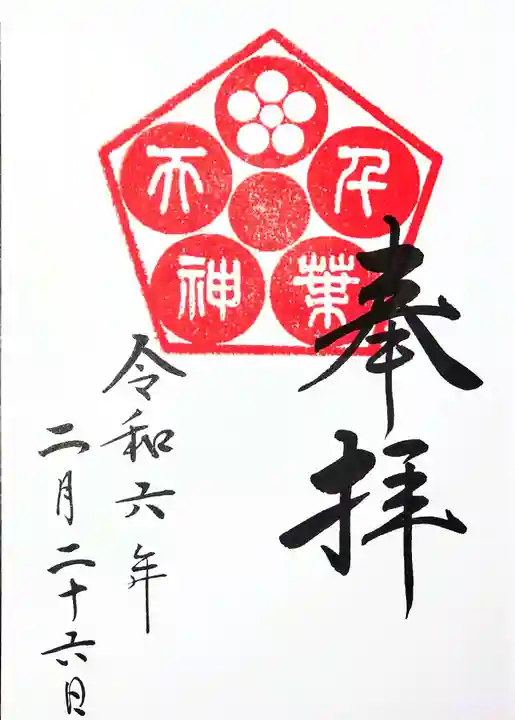 千葉
天神
奉拝
令和六年
二月二十六日